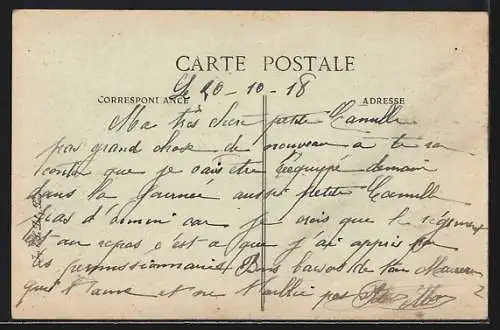 CARTE POSTALE
Le 20-10-18
CORRESPONDANCE ADRESSE
Ma très chère petite Camille
pas grand chose de nouveau a te ra
conter que je vais être rééquipé demain
dans la journée aussi petite Camille
pas d'ennui car je crois que le régiment
est au repos c'est a que j'ai appris par
les permissionnaires Bons baisers de ton
qui t'aime et ne t'oublie pas